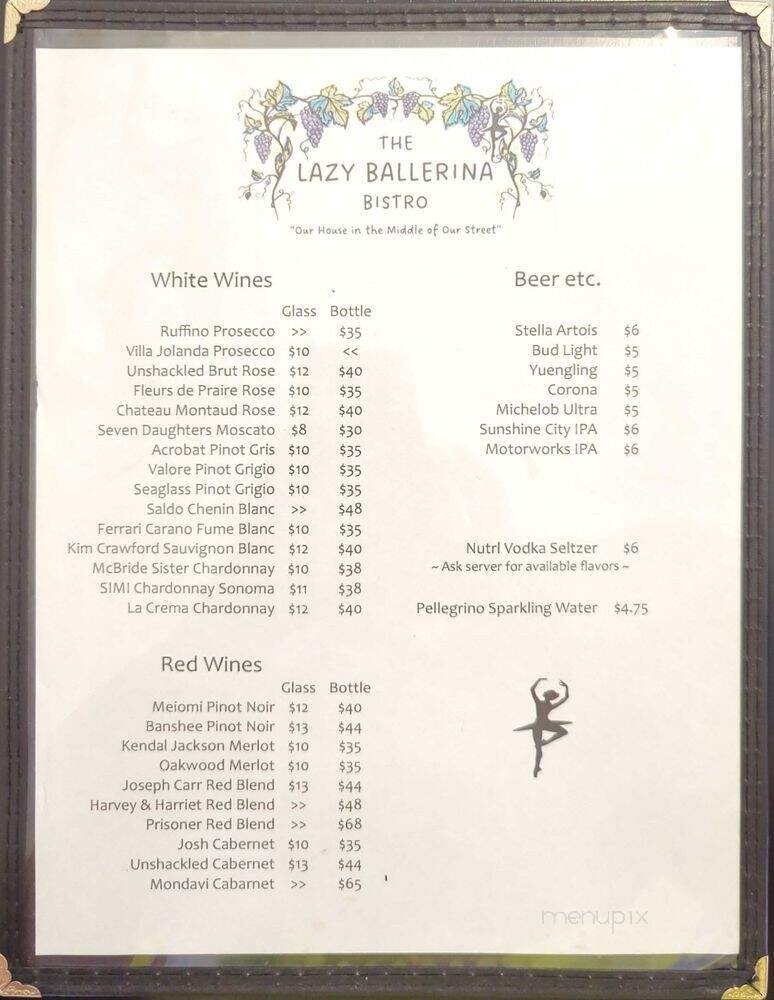 THE
LAZY BALLERINA
BISTRO
"Our House in the Middle of Our Street"
White Wines
Glass Bottle
Ruffino Prosecco >> $35
Villa Jolanda Prosecco $10 <<
Unshackled Brut Rose $12 $40
Fleurs de Praire Rose $10 $35
Chateau Montaud Rose $12 $40
Seven Daughters Moscato $8 $30
Acrobat Pinot Gris $10 $35
Valore Pinot Grigio $10 $35
Seaglass Pinot Grigio $10 $35
Saldo Chenin Blanc >> $48
Ferrari Carano Fume Blanc $10 $35
Kim Crawford Sauvignon Blanc $12 $40
McBride Sister Chardonnay $10 $38
SIMI Chardonnay Sonoma $11 $38
La Crema Chardonnay $12 $40
Red Wines
Glass Bottle
Meiomi Pinot Noir $12 $40
Banshee Pinot Noir $13 $44
Kendal Jackson Merlot $10 $35
Oakwood Merlot $10 $35
Joseph Carr Red Blend $13 $44
Harvey & Harriet Red Blend >> $48
Prisoner Red Blend >> $68
Josh Cabernet $10 $35
Unshackled Cabernet $13 $44
Mondavi Cabarnet >> $65
Beer etc.
Stella Artois $6
Bud Light $5
Yuengling $5
Corona $5
Michelob Ultra $5
Sunshine City IPA $6
Motorworks IPA $6
Nutrl Vodka Seltzer $6
~ Ask server for available flavors ~
Pellegrino Sparkling Water $4.75
menupix